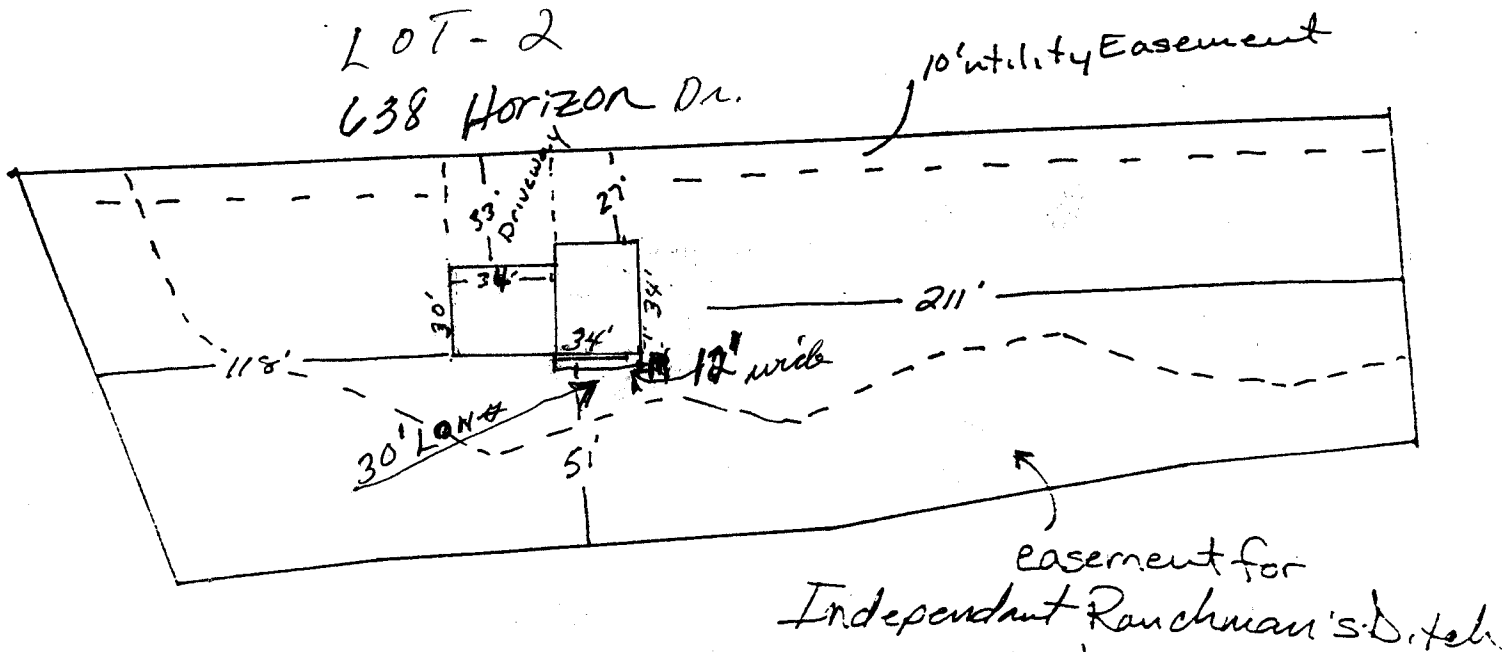 LOT - 2
638 Horizon Dr.
10' utility Easement
33'
Driveway
27'
34'
30'
34'
34'
211'
118'
12" wide
30' LONG
51'
easement for
Independant Ranchman's Ditch